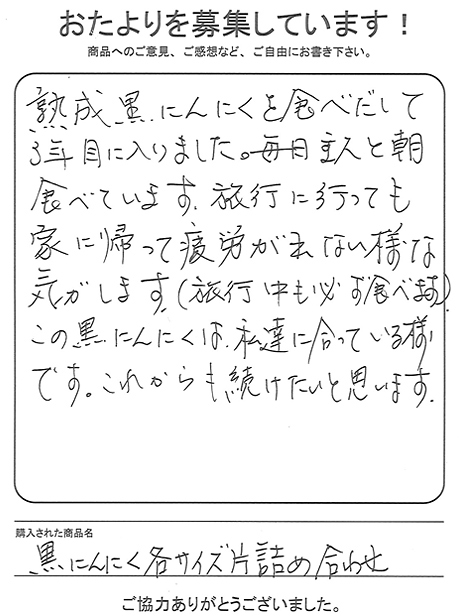 おたよりを募集しています！
商品へのご意見、ご感想など、ご自由にお書き下さい。
熟成黒にんにくを食べだして
3年目に入りました。毎日主人と朝
食べています。旅行に行っても
家に帰って疲労がれない様な
気がします。(旅行中も必ず食べます)
この黒にんにくは、私達に合っている様
です。これからも続けたいと思います。
購入された商品名
黒にんにく各サイズ片詰め合わせ
ご協力ありがとうございました。